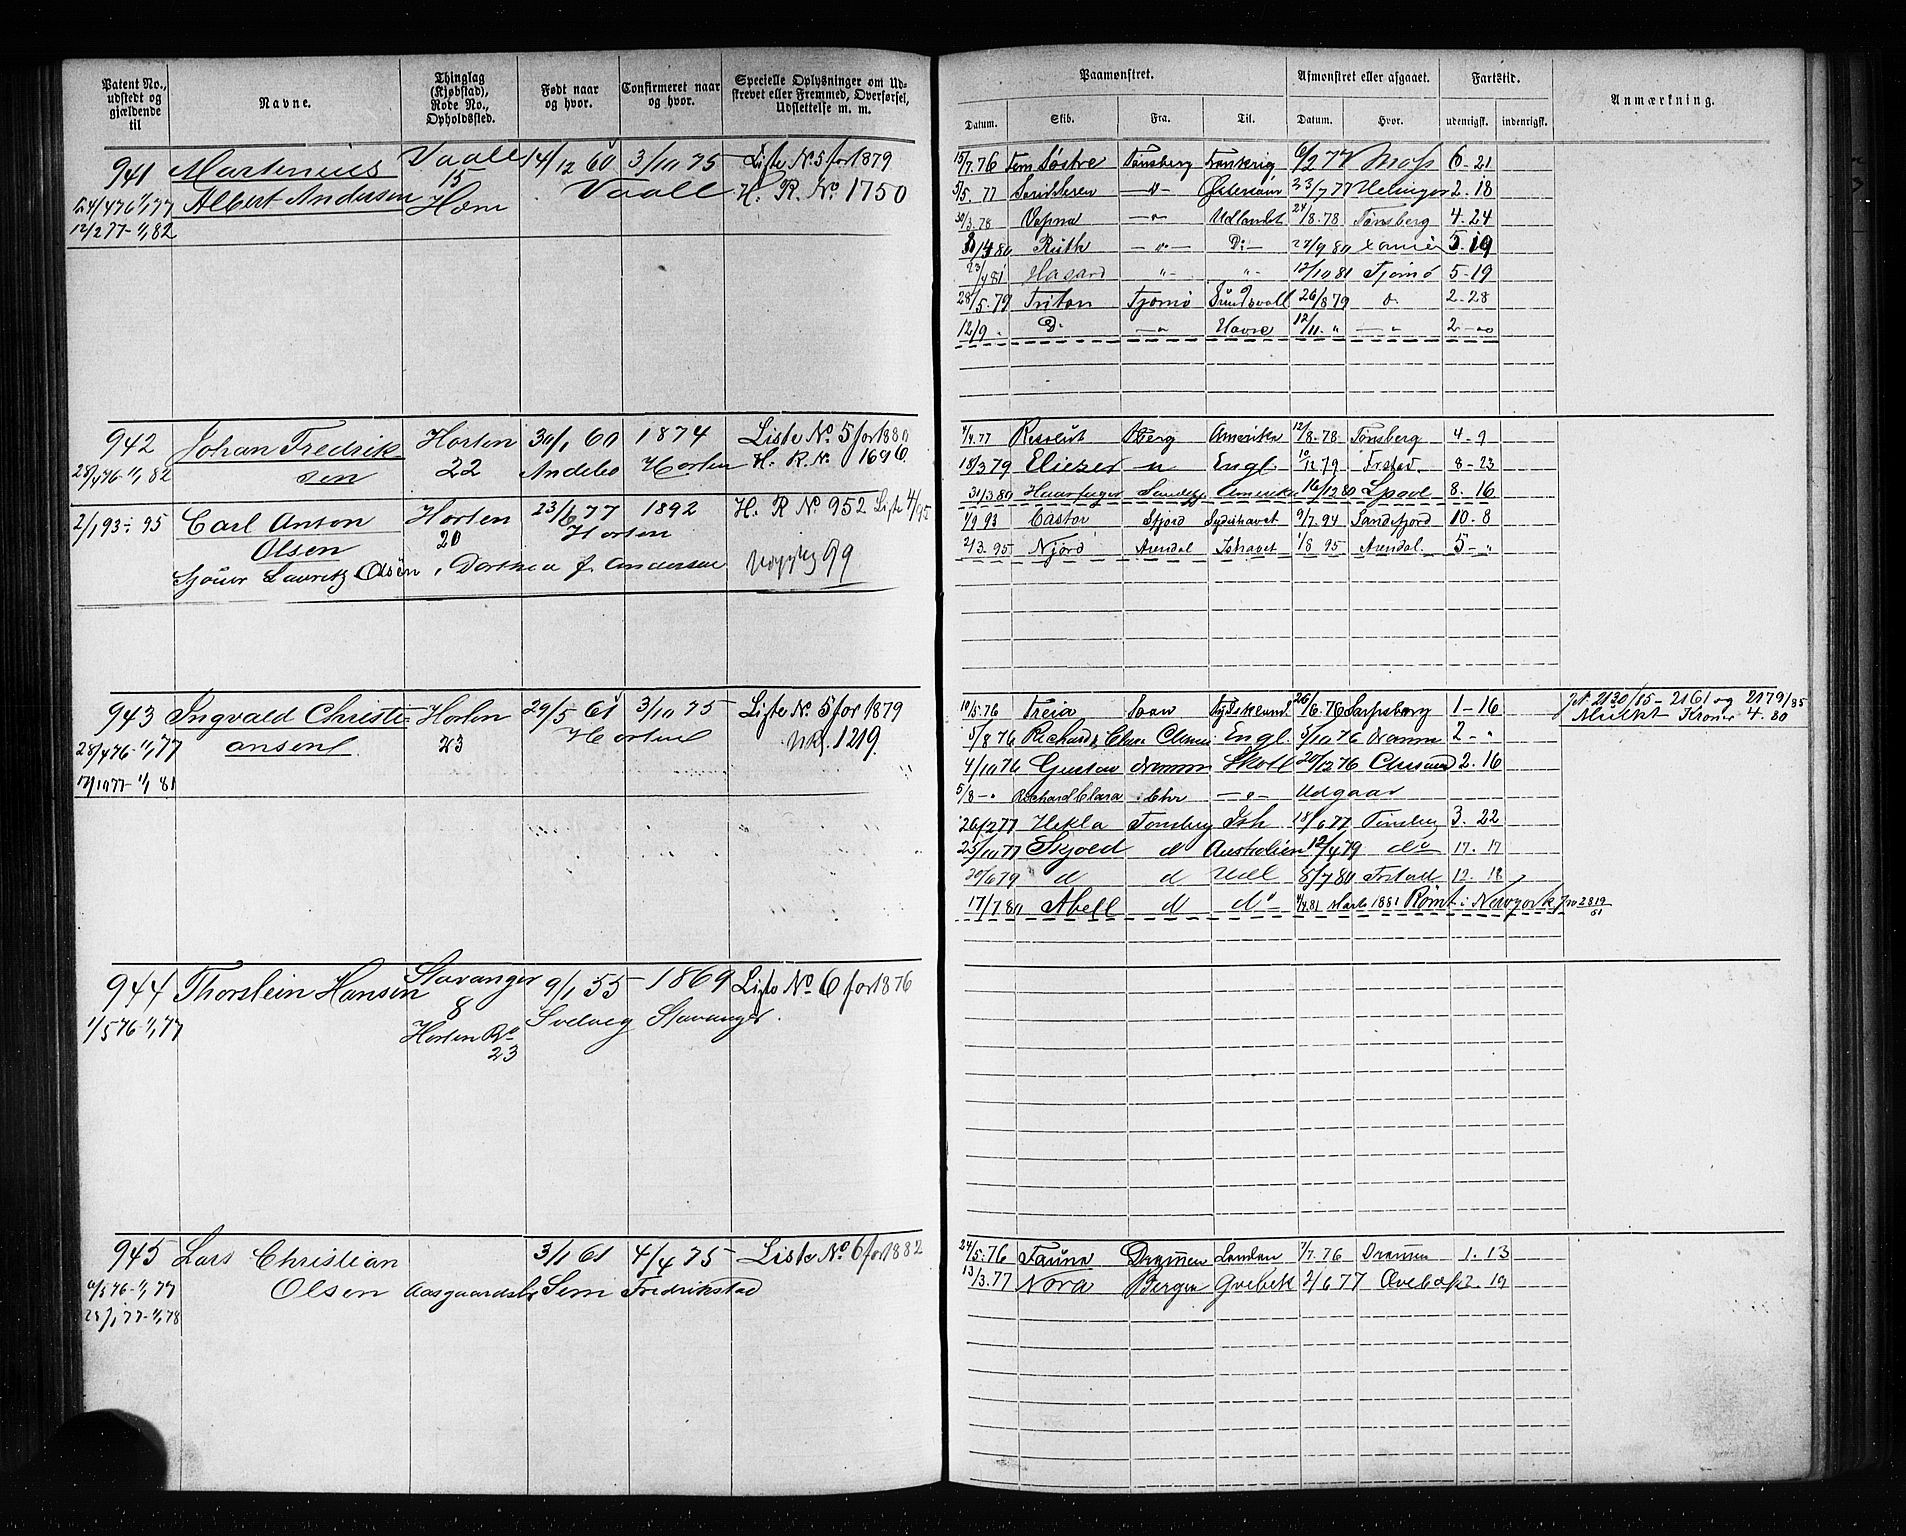 Patent No., udstedt og gjældende til
Navne.
Thinglag (Kjøbstad), Rode No., Opholdssted.
Født naar og hvor.
Confirmeret naar og hvor.
Specielle Oplysninger om Udskrevet eller Fremmed, Overførsel, Udslettelse m. m.
Paamønstret.
Afmønstret eller afgaaet.
Fartstid.
Anmærkning.
Datum. Skib. Fra. Til. Datum. Hvor. udenrigsk. indenrigsk.
941 Martinius Vaale 14/12 60 3/10 75 Liste No 5 for 1879
Albert Andersen 15 Vaale H. R. No 1750
24/4 76 1/1 77 Hem
12/2 77 - 1/1 82
15/7. 76 Fem Søstre Tønsberg 6/2 77 Moss 6 - 21
5/5. 77 23/7 77 2. 18
30/3. 78 Udlandet 24/8. 78 Tønsberg 4. 24
Ruth D: 5. 19
Hasard 12/10 81 Tjømø 5 - 19
28/5. 79 Triton Tjømø Sundsvall 26/8 79 2 - 28
12/9 D: Havre 12/11
942 Johan Fredrik Horten 30/1 60 1874 Liste No 5 for 1880
28/4 76 - 1/1 82 sen 22 Andebo Horten H. R. No 1696
Resolut Tberg Amerika 12/8. 78 Tønsberg 4 - 9
15/3 79 Eliezer Engl. 10/12 79 Frstad. 8 - 23
31/3 80 Haarfager Amerika 16/12 80 Lpool 8. 16
2/1 93 - 95 Carl Anton Horten 23/6 77 1892 H. R No 952 Liste 4/95
Olsen 20 Horten
Sjöuer Lauritz Olsen, Dorthea f. Andersen 99
1/9 93 Castor Sfjord Sydishavet 9/7. 94 Sandefjord 10. 8
2/3. 95 Njord Arendal Ishavet 1/8 95 Arendal. 5 -
943 Ingvald Christi- Horten 29/5 61 3/10 75 Liste No. 5 for 1879
28/4 76 - 1/1 77 ansen 23 Horten 1219.
17/10 77 - 1/1 81
10/5. 76 Freia Tydskland 26/6. 76 Sarpsborg 1 - 16 2130/85 - 2161 og 2179/85
Mulkt Kroner 4. 80
5/8 76 Richard & Clara Engl. 3/10 76 Dramm 2 -
4/10 76 Gustav Dramm Skotl 20/12 76 2. 16
5/8 - Richard Clara Udgaar
26/2 77 Hekla Tønsberg Ish 18/6 77 Tønsberg 3. 22
25/10 77 Skjold d Australien 12/4 79 do 17. 17
20/6 79 d d Udl 8/7 80 Frstad 12. 18
17/7 80 Abell d do Marts 1881 Rømt i Newyork 2819/81
944 Thorstein Hansen Stavanger 9/1 55 1869 Liste No 6 for 1876
1/5 76 - 1/1 77 8 Svelvig Stavanger.
Horten Ro
23
945 Lars Christian 3/1 61 4/4 75 Liste No. 6 for 1882
Olsen Aasgaardstr Sem Fredrikstad
28/1 77 - 1/1 78
24/5. 76 Fauna Drammen London 7/7. 76 Drammen 1. 13
13/3. 77 Nora Bergen 2/6 77 2. 19